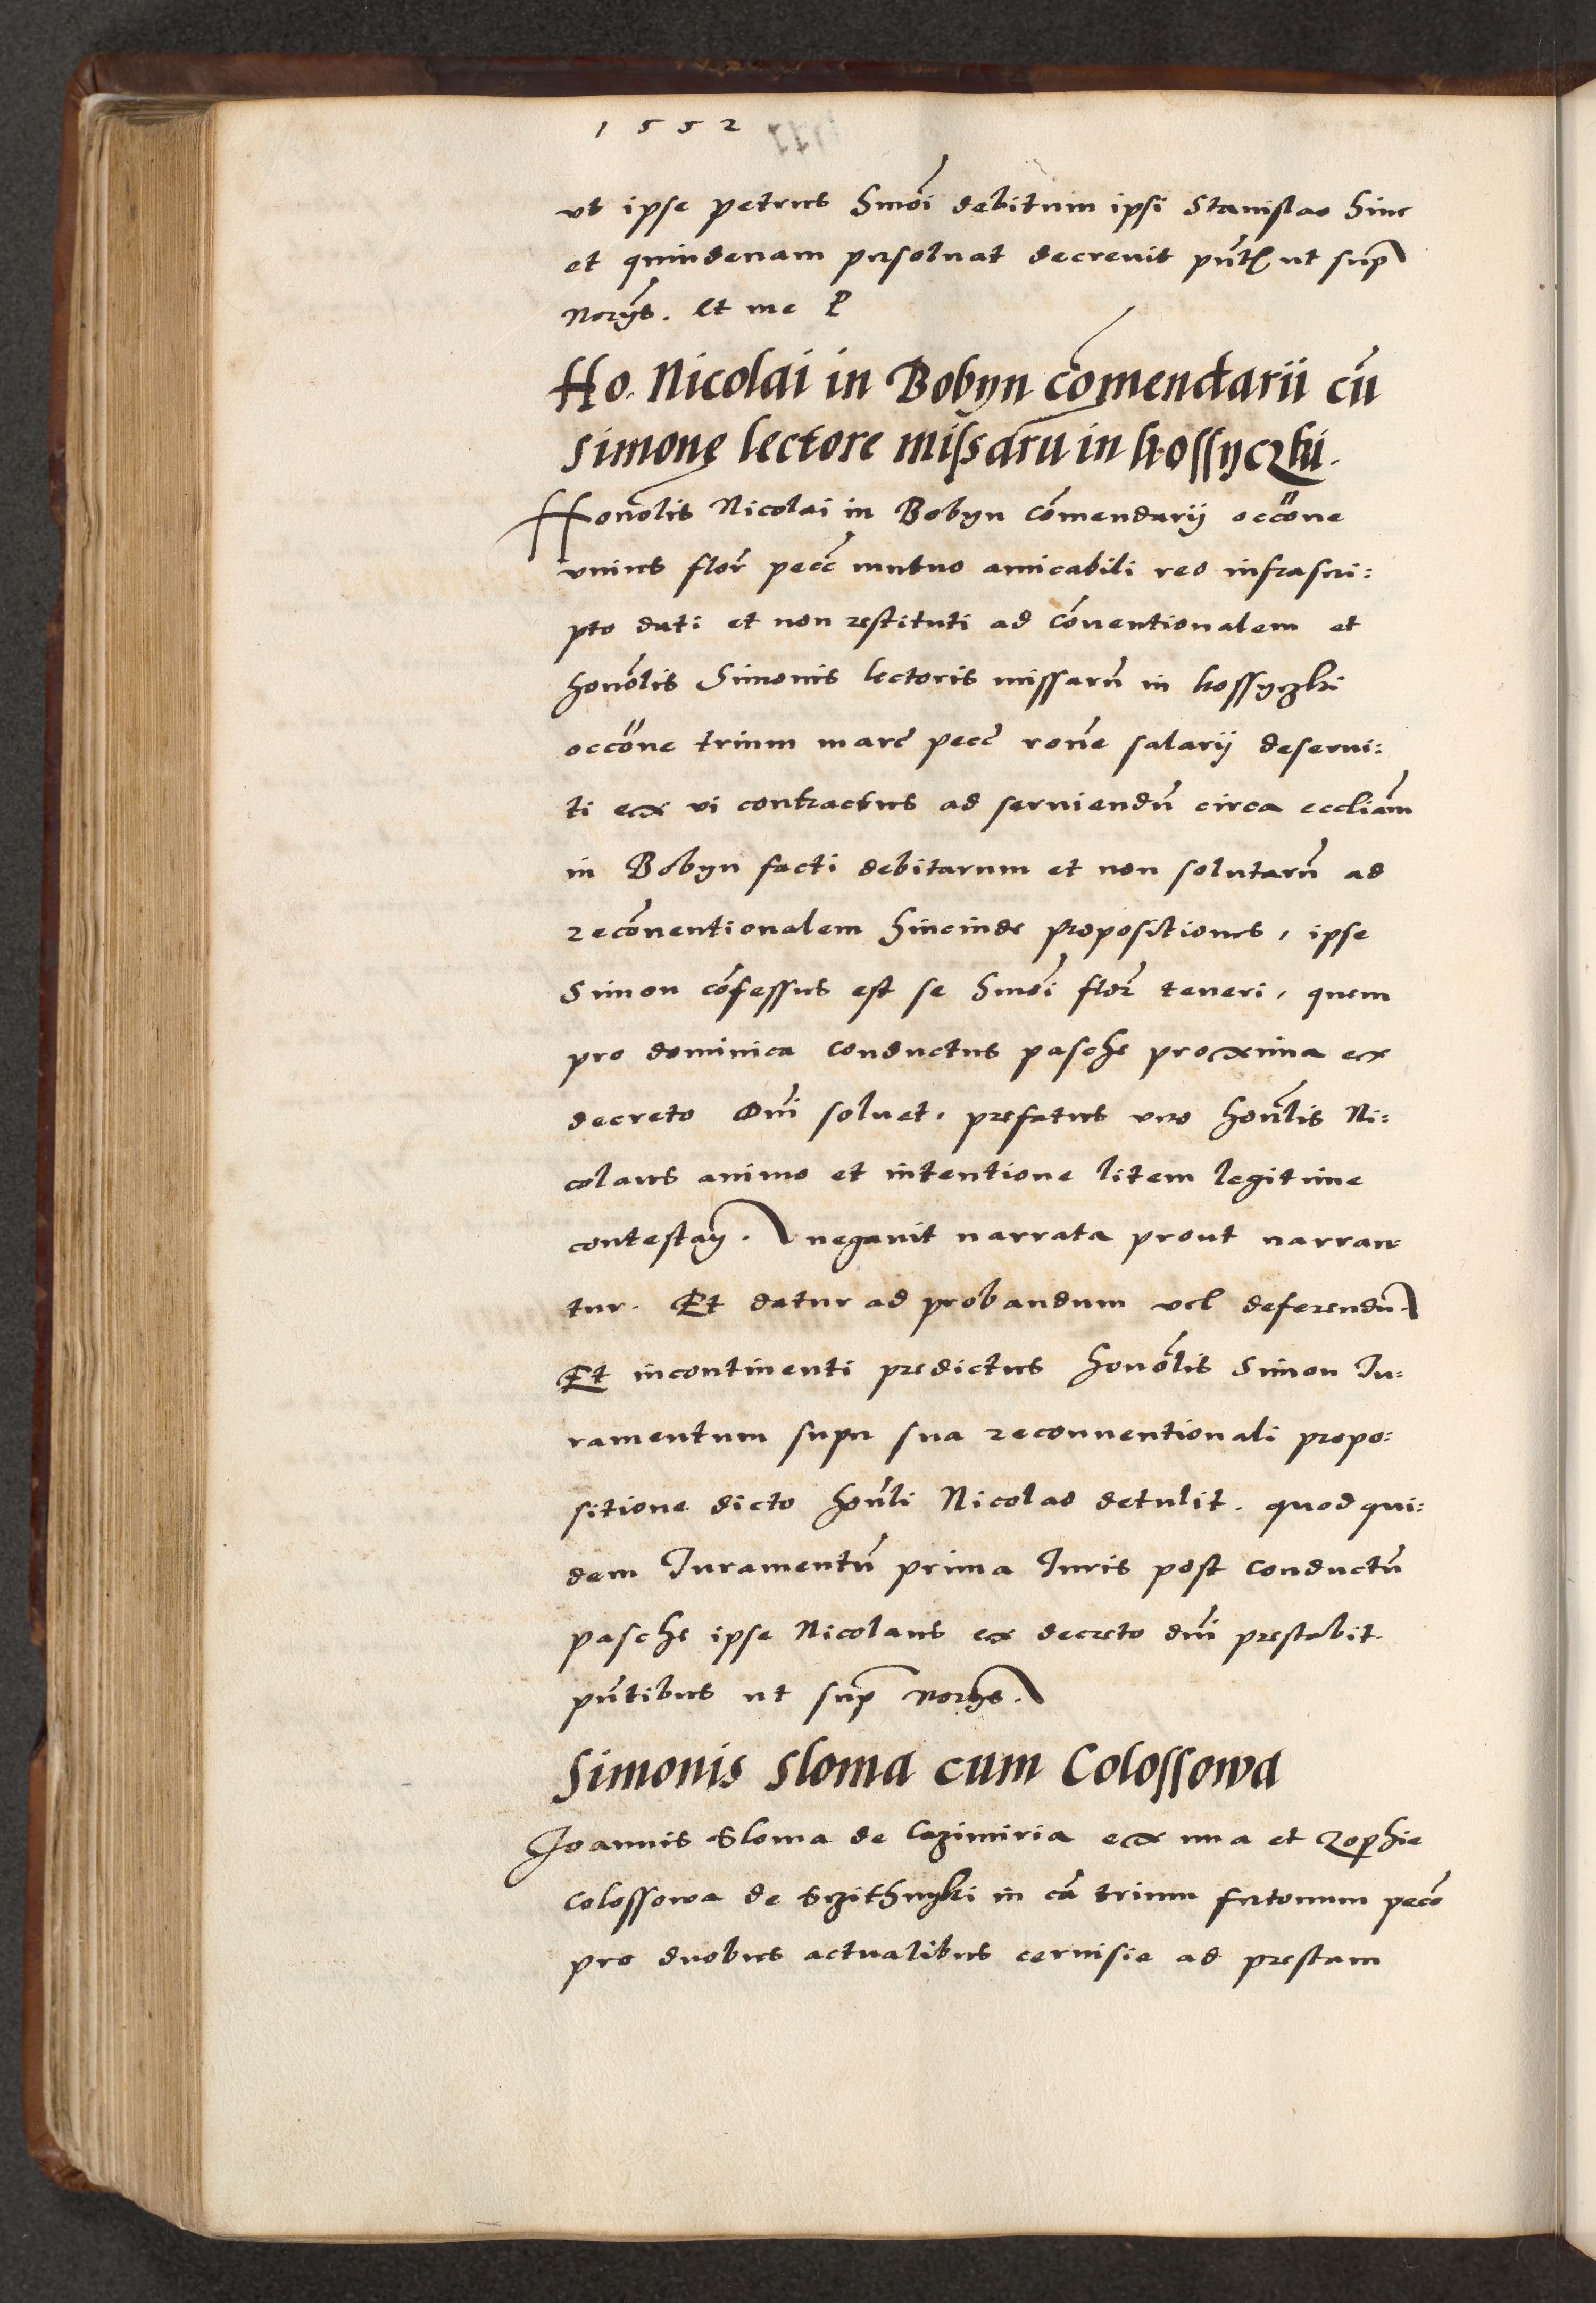 1552
ut ipse petrus hmoi debitum ipsi Stanislao hinc
et quindenam persolvat decrevit pntibus ut supra
Norys. Et me P
Ho. Nicolai in Bobyn comendarii cu
Simone lectore missaru in kossyczki.
Honolis Nicolai in Bobyn comendarij occone
unius flor pecc mutuo amicabili reo infrascri:
pto dati et non restituti ad conventionalem et
honolis Simonis lectoris missaru in kossyczki
occone trium marc pecc rone salarij deservi:
ti ex vi contractus ad serviendu circa eccliam
in Bobyn facti debitarum et non solutaru ad
reconventionalem hincinde propositiones, ipse
Simon confessus est se hmoi flor teneri, quem
pro dominica conductus pasche proxima ex
decreto Dni solvet. prefatus vero honlis Ni:
colaus animo et intentione litem legitime
contestan. negavit narrata prout narran
tur. Et datur ad probandum vel deferendu.
Et incontinenti predictus honolis Simon Iu:
ramentum super sua reconventionali propo:
sitione dicto honli Nicolao detulit. quod qui:
dem Iuramentu prima Iuris post conductu
pasche ipse Nicolaus ex decreto dni prestabit.
pntibus ut sup norys.
Simonis Sloma cum Colossowa
Joannis Sloma de Cazimiria ex una et Zophie
Colossowa de Szithnyki in ca trium fertonum pecc
pro duobus actualibus cervisie ad prestam